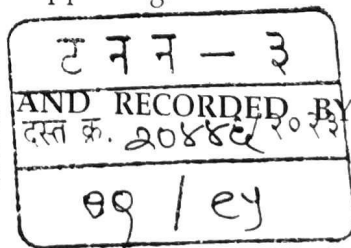 ट न न - ३
AND RECORDED BY
दस्त क्र. २०४४६ २०२३
७१ / ९५